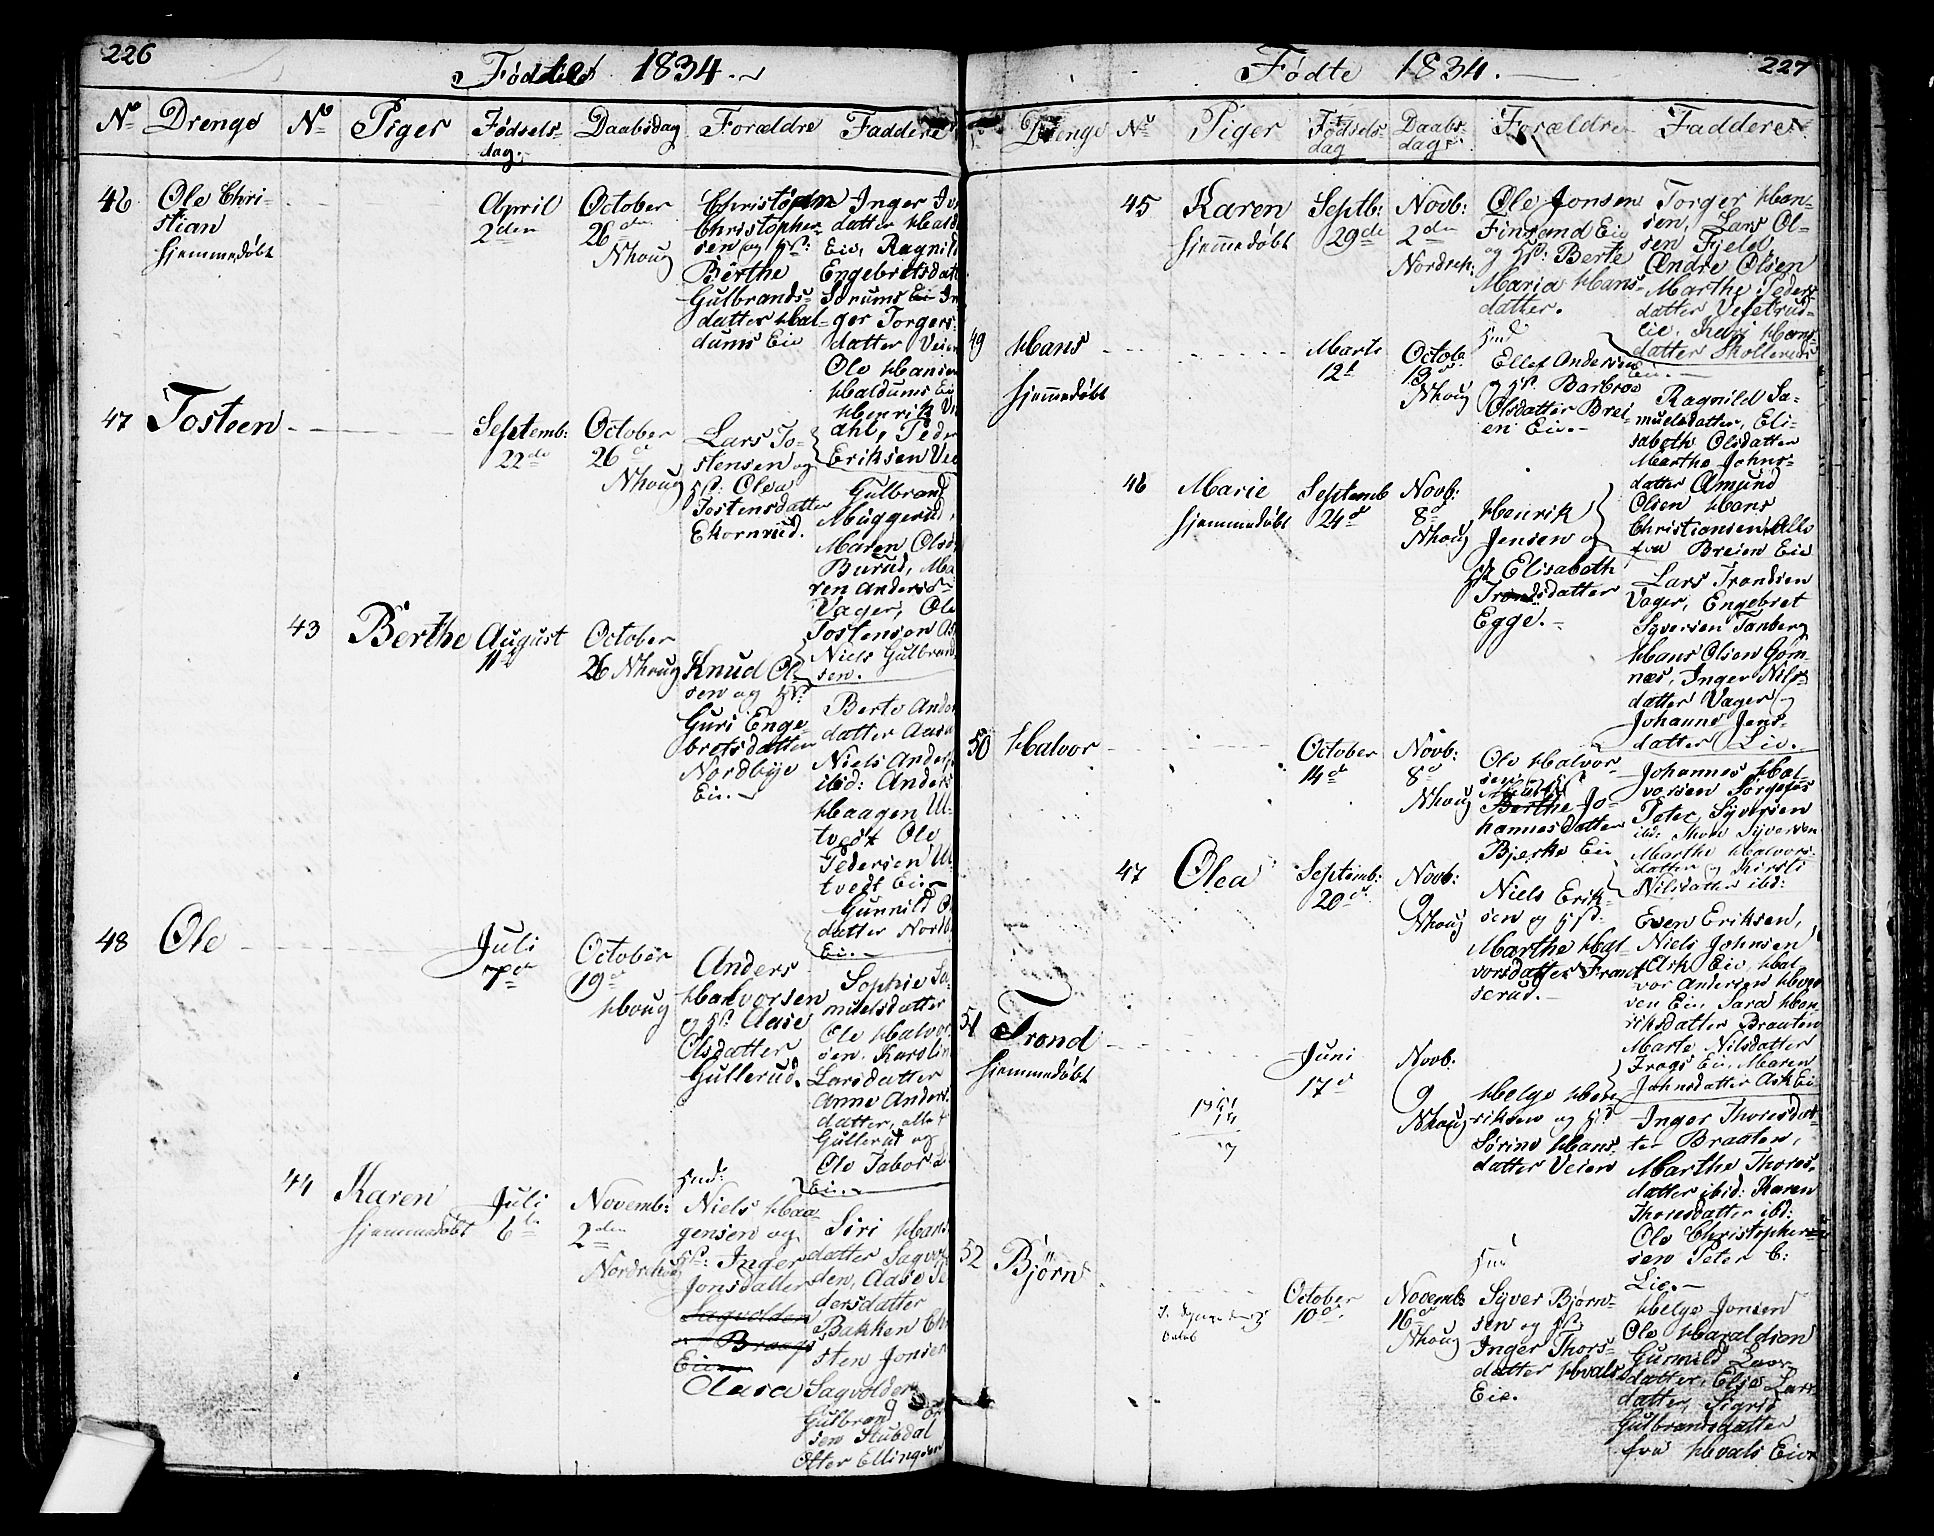 226
Fødte 1834.
No Drenge No Piger Fødsels-dag. Daabsdag Forældre Faddere
46
Ole Chri-
stian
hjemmedøbt
April
2den
October
26de
Nhoug
Christophen
Christopher-
sen og Hst:
Berthe
Gulbrands-
datter Hal-
dums Eie
Inger
datter Hald
Eie, Ragnild
Engebretsdat
Sørums Eie In
ger Torgers-
datter Veien
Ole Hansen
Haldums Eie
Henrik
dahl, Peder
Eriksen
47
Tosteen
Septemb:
22de
October
26de
Nhoug
Lars To-
stensen og
Hst: Olea
Tostensdatter
Ekornrud.
Gulbrand
Muggerud,
Maren Ols
Burud, Ma
ren Anders
Vager, Ole
Tostensen
Niels Gulbran
sen.
43
Berthe
August
11te
October
26 Nhoug
Knud Ol-
sen og Hst
Guri Enge-
bretsdatter
Nordbye
Eie.
Berte Ander
datter
Niels Anders
ibid: Anders
Haagen Ul
tvedt Ole
Pedersen Ul
tvedt Eie
Gunnild
datter Nordb
Eie.
48
Ole
Juli
7de
October
19de
Houg
Anders
Halvorsen
og Hst. Aase
Olsdatter
Gullerud.
Sophie Sa-
muelsdatter
Ole Halvor
sen. Karolin
Larsdatter
Anne Anders
datter, alle f
Gullerud og
Ole Tabor
Eie.
44
Karen
hjemmedøbt
Juli
6te
Novemb:
2den
Nordrehoug
Ind:
Niels Haa-
gensen og
Hst: Inger
Jonsdatter
Sagvolden
Braags
Eie
Siri Hans
datter Sagvol
den, Aase Pe
dersdatter
Bakken Chr
sten Jonsen
Sagvolden
Gulbrand
sen Stubdal
Otter Ellingsen
227
Fødte 1834.
Drenge No Piger Fødsels-dag Daabs-dag Forældre Faddere
45
Karen
hjemmedøbt
Septb:
29de
Novb:
2den
Nordreh:
Ole Jonsen
Finsand Eie
og Hst: Berte
Maria Hans-
datter.
Torger Han-
sen, Lars Ol-
sen Fjeld,
Andre Olsen
Marthe Peders-
datter
Eie, Kari Hans-
datter Skollerud
Eie.
49
Hans
hjemmedøbt
Marts
12te
Octob.
19de
Nhoug
Ind
Ellef Andersen
og Hst. Barbroe
Olsdatter Brei-
en Eie.
Ragnild Sa-
muelsdatter, Eli-
sabeth Olsdatter
Marthe Johns-
datter Amund
Olsen Hans
Christiansen, Alle
fra Breien Eie
46
Marie
hjemmedøbt
Septemb
24de
Novb:
8de
Nhoug
Henrik
Jensen og
Hst Elisabeth
Trondsdatter
Egge.
Lars Trondsen
Vager, Engebret
Syversen Tanberg
Hans Olsen Gom-
næs, Inger Nils-
datter Vager og
Johanne Jens-
datter Lie.
50
Halvor
October
14de
Novb:
8de
Nhoug
Ole Halvor-
sen og Hst
Berthe Jo-
hannesdatter
Bjerke Eie
Johannes Hal-
vorsen
Peter Syversen
ibd: Thore Syversen
Marthe Halvors-
datter og Kirsti
Nilsdatter ibd:
47
Olea
Septemb:
20de
Novb:
9
Nhoug
Niels Erik-
sen og Hst:
Marthe Hal-
vorsdatter
serud.
Even Eriksen,
Niels Johnsen
Ask Eie Hal-
vor Andersen
sen Eie, Sara Hen-
riksdatter Braaten
Marte Nilsdatter
Frogs Eie, Maren
Johnsdatter Ask Eie
51
Trond
hjemmedøbt
Juni
17de
Novb:
9
Nhoug
Helge Hen-
riksen og Hst
Sørine Hans-
datter Veien
Inger Thoresdat-
ter Braaten,
Marthe Thores-
datter ibid: Karen
Thoresdatter ibd:
Ole Christopher-
sen Peter C:
Lie.
52
Bjørn
October
10de
Novemb:
16de
Nhoug
Ind
Syver Bjørn-
sen og Hst
Inger Thors-
datter Hvals
Eie.
Helge Jonsen
Ole Haraldsen
Gunnild Lars-
datter, Elie Lars-
datter, Sigrid
Gulbrandsdatter
fra Hvals Eie